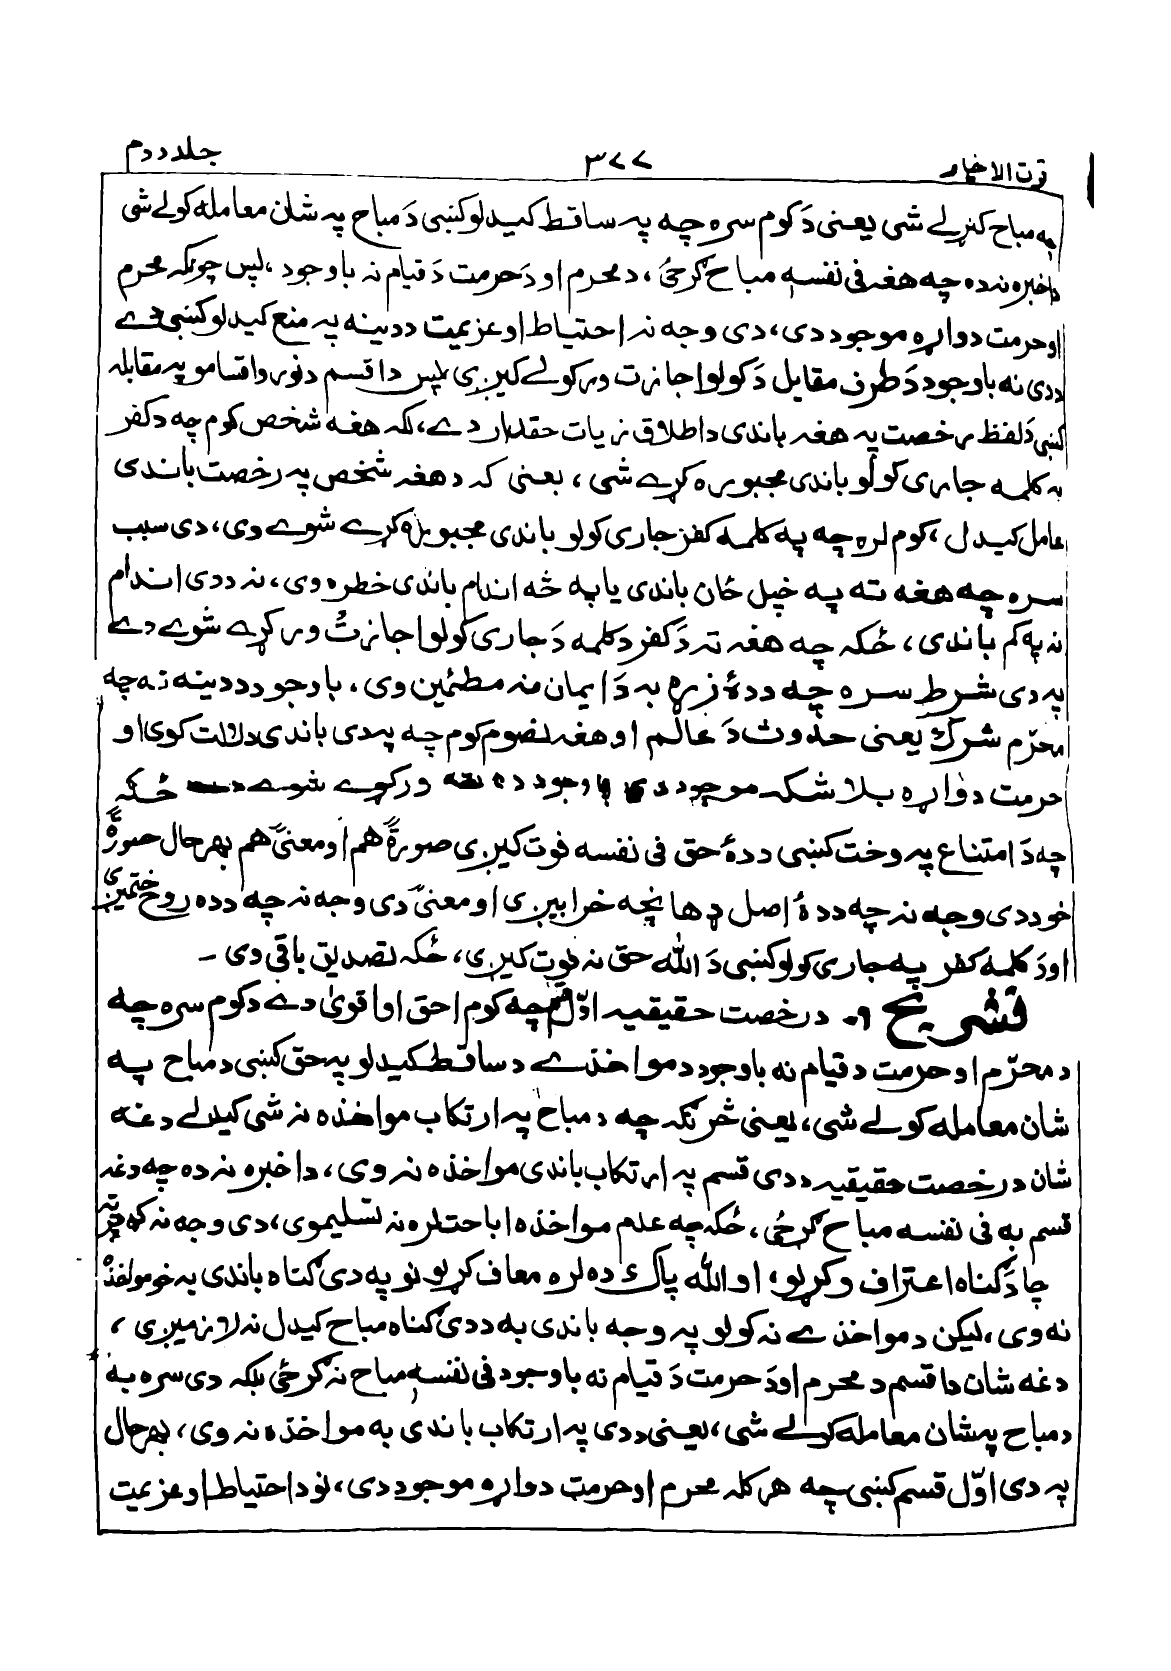 قرت الاخیار ٣٧٧ جلد دوم
په مباح کنړلے شی یعنی دَ کوم سره چه په ساقط کیدلو کښی دَ مباح په شان معامله کولے شی
دا خبره نه ده چه هغه فی نفسه مباح ګرځی، د محرم او دَ حرمت دَ قیام نه باوجود، لپس چونکه محرم
او حرمت دواړه موجود دی، دی وجه نه احتیاط او عزیمت ددینه په منع کیدلو کښی دے
ددی نه باوجود دَ طرف مقابل دَ کولو اجازت ورکولے کیږی پس دا قسم د نورو اقسامو په مقابله
کښی دَ لفظ رخصت په هغه باندی د اطلاق زیات حقدار دے، لکه هغه شخص کوم چه د کفر
به کلمه جاری کولو باندی مجبوره کړے شی، یعنی که د هغه شخص په رخصت باندی
عامل کیدل، کوم لره چه په کلمه کفر جاری کولو باندی مجبوره کړے شوے وی، دی سبب
سره چه هغه ته په خپل ځان باندی یا په څه اندام باندی خطره وی، نه ددی اندام
نه په کم باندی، ځکه چه هغه ته دَ کفر د کلمه دَ جاری کولو اجازت ورکړے شوے دے
په دی شرط سره چه ددۀ زړه به دَ ایمان منه مطمئین وی، باوجود ددینه نه چه
محرّم شرک یعنی حدوث دَ عالم او هغه نصوم کوم چه په دی باندی دلالت کوی او
حرمت دواړه بلا شکه موجود دی باوجود ده ورکړے شوے ځکه
چه دَ امتناع په وخت کښی ددۀ حق فی نفسه فوت کیږی صورةً هم او معنیً هم بهرحال صورةً
خو ددی وجه نه چه ددۀ اصل ډهانچه خرابیږی او معنیً دی وجه نه چه دده روح ختمیږی
او دَ کلمه کفر په جاری کولو کښی دَ اللّٰه حق نه فوت کیږی، ځکه تصدیق باقی دی ۔
تشریح :۔ د رخصت حقیقیه اوّل قسم چه کوم احق او اقویٰ دے د کوم سره چه
د محرّم او حرمت د قیام نه باوجود د مواخذے د ساقط کیدلو په حق کښی د مباح په
شان معامله کولے شی، یعنی څرنګه چه د مباح په ارتکاب مواخذه نه شی کیدلے دغه
شان د رخصت حقیقیه ددی قسم په ارتکاب باندی مواخذه نه وی، دا خبره نه ده چه دغه
قسم به فی نفسه مباح ګرځی، ځکه چه عدم مواخذه اباحت لره نه تسلیموی، دی وجه نه که
چا دَ ګناه اعتراف وکړلو، او اللّٰه پاک ده لره معاف کړلو نو په دی ګناه باندی به خو مواخذه
نه وی، لیکن د مواخذے نه کولو په وجه باندی به ددی ګناه مباح کیدل نه لازمیږی،
دغه شان دا قسم د محرم او دَ حرمت دَ قیام نه باوجود فی نفسه مباح نه ګرځی بلکه دی سره به
د مباح په شان معامله کولے شی، یعنی ددی په ارتکاب باندی به مواخذه نه وی، بهرحال
په دی اوّل قسم کښی چه هر کله محرم او حرمت دواړه موجود دی، نو د احتیاط او عزیمت